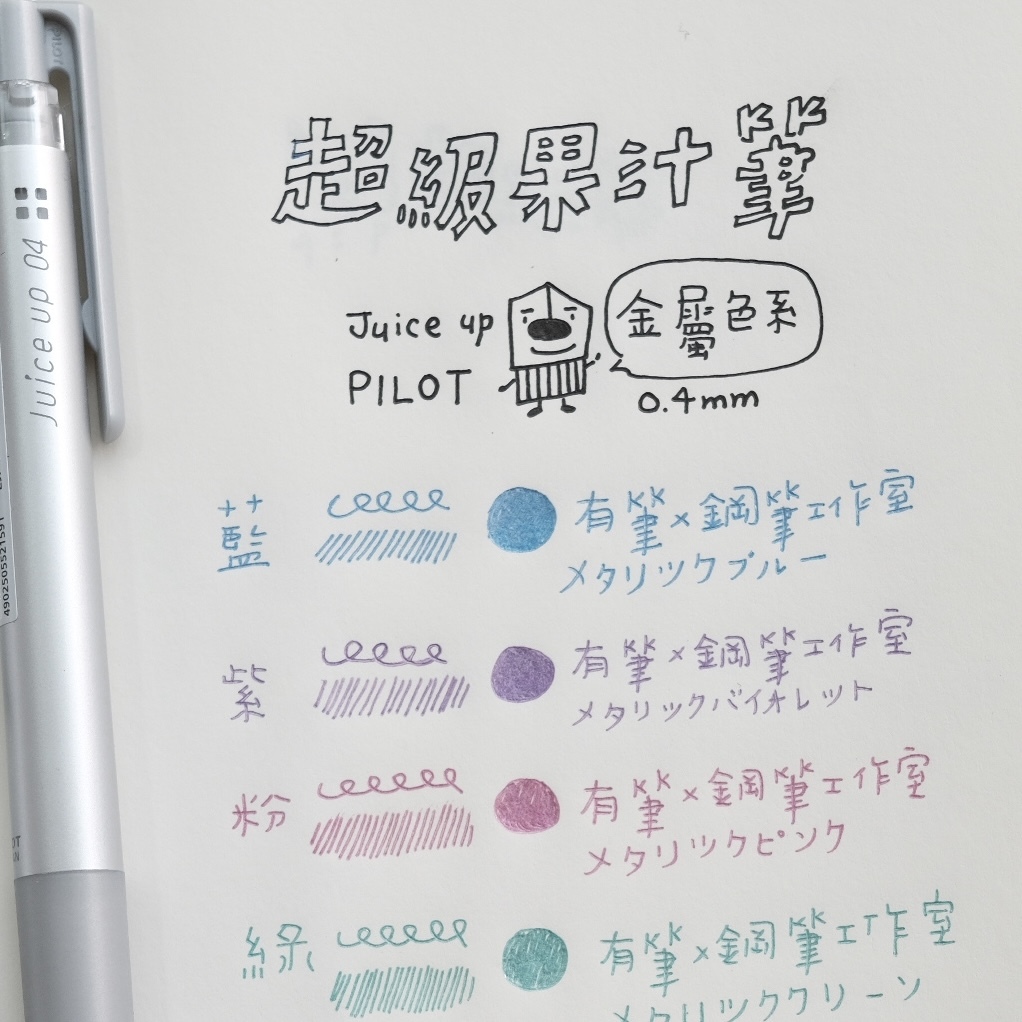 超級果汁筆
Juice up
PILOT
金屬色系
0.4mm
藍
有筆×鋼筆工作室
メタリックブルー
紫
有筆×鋼筆工作室
メタリックバイオレット
粉
有筆×鋼筆工作室
メタリックピンク
綠
有筆×鋼筆工作室
メタリックグリーン
Juice up 04
4902505521591